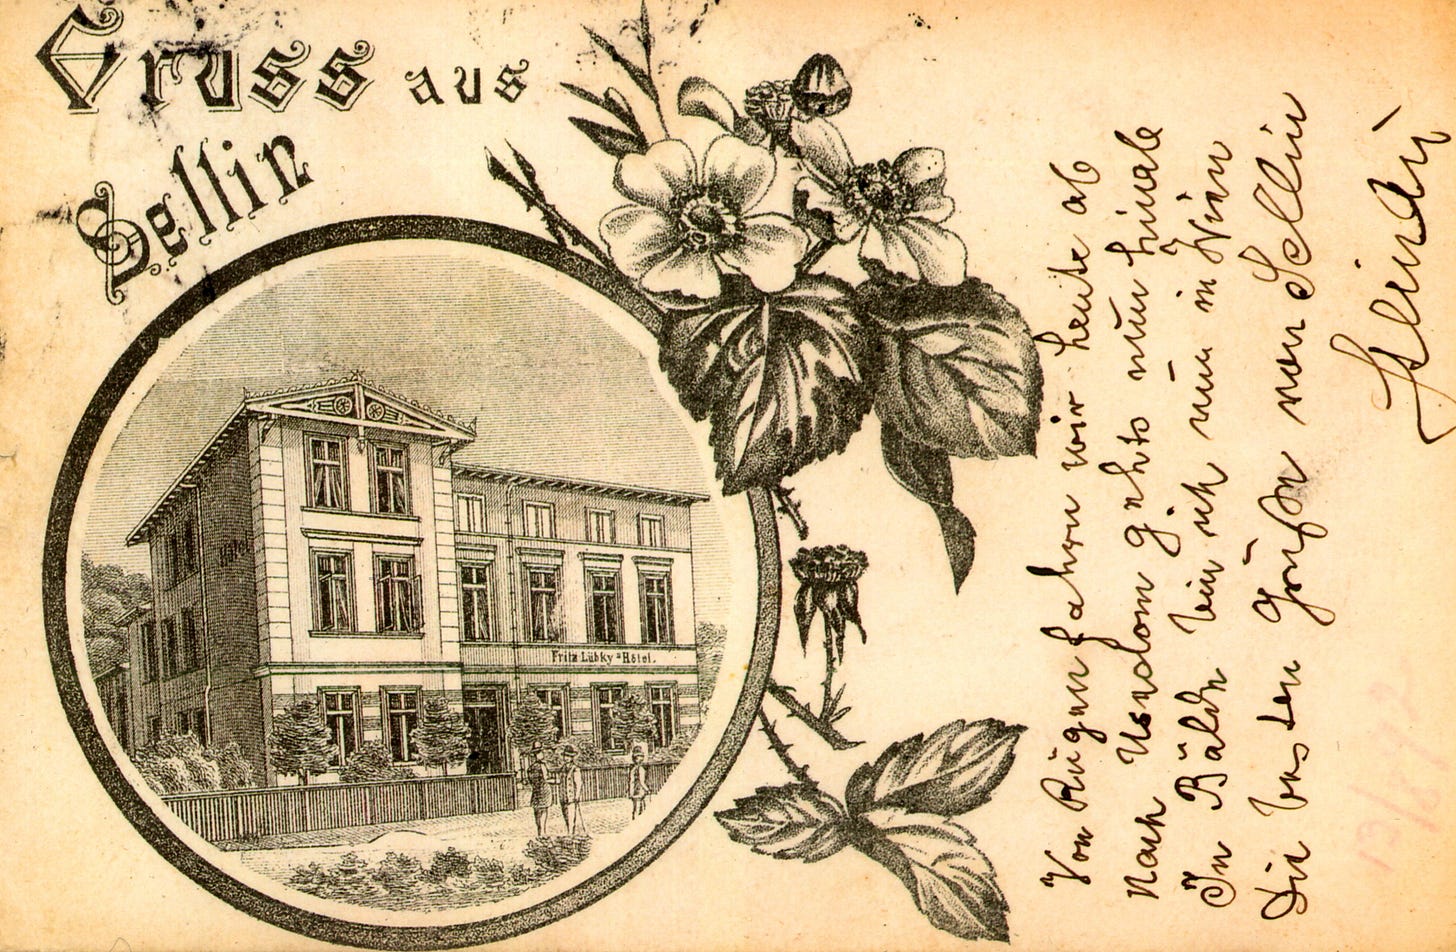 Gruss aus
Sellin
Hôtel
Fritz Lübky's Hôtel.
Von Rügen fahren wir heute ab
Nach Usedom gehts nun hinab
In Bälde bin ich nun in Wien
Die besten Grüße von Sellin
13/8/92